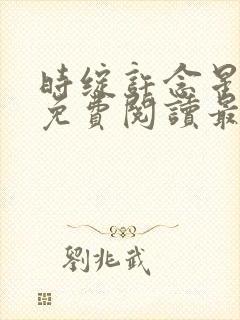 时绽許念星
免費閱讀最
劉兆武